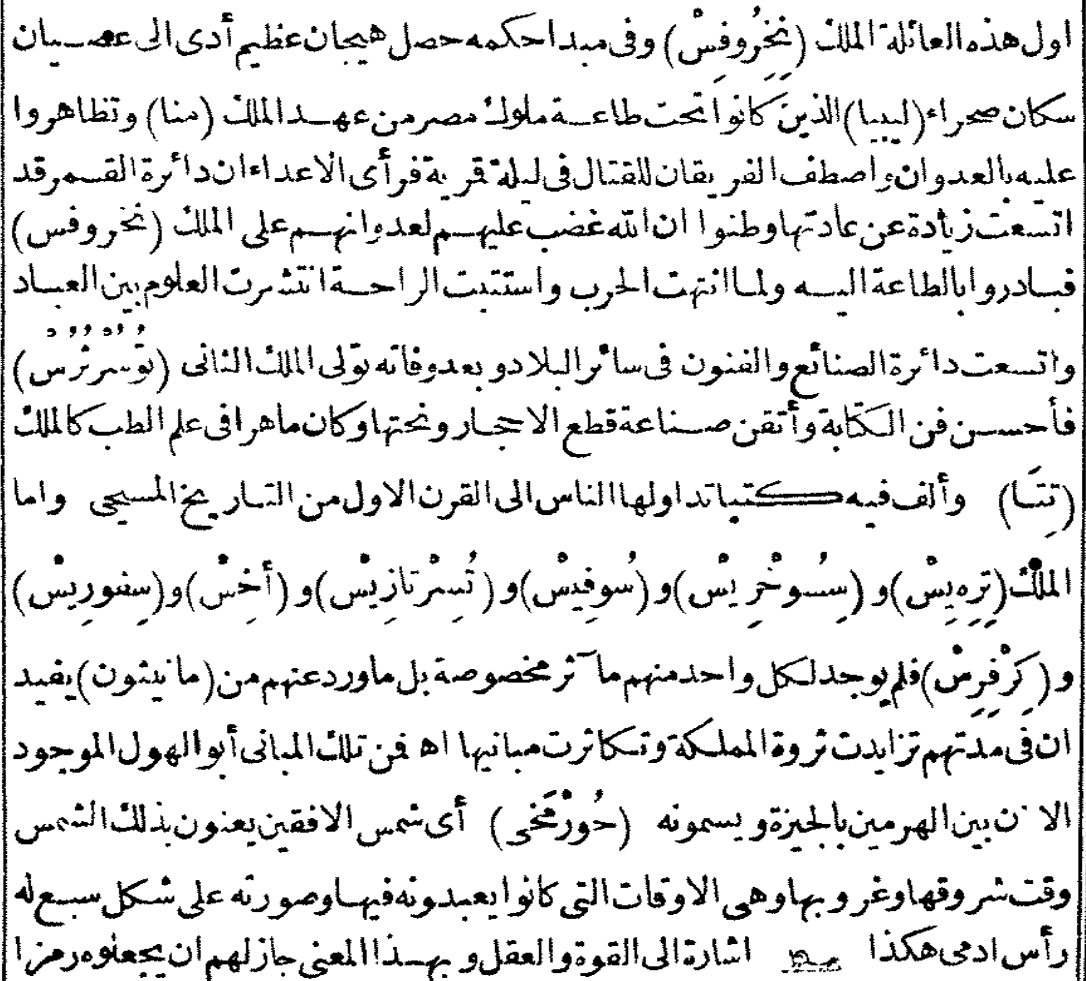 اول هذه العائلة الملك (نِخِرُوفِسْ) وفى مبداحكمه حصل هيجان عظيم أدى الى عصيان
سكان صحراء (ليبيا) الذين كانوا تحت طاعة ملوك مصر من عهد الملك (منا) وتظاهروا
عليه بالعدوان واصطف الفريقان للقتال فى ليلة قمرية فرأى الاعداء ان دائرة القمر قد
اتسعت زيادة عن عادتها وظنوا ان الله غضب عليهم لعدوانهم على الملك (نخروفس)
فبادروا بالطاعة اليه ولما انتهت الحرب واستتبت الراحة انتشرت العلوم بين العباد
واتسعت دائرة الصنائع والفنون فى سائر البلاد وبعد وفاته تولى الملك الثانى (تُوسُرْثُرُسْ)
فأحسن فن الكتابة وأتقن صناعة قطع الاحجار ونحتها وكان ماهرا فى علم الطب كالملك
(تِتَا) وألف فيه كتبا تداولها الناس الى القرن الاول من التاريخ المسيحى واما
الملك (تِرِهِيسْ) و (سِسُوخْرِيسْ) و (سُوفِيسْ) و (تُسِرْتازِيسْ) و (أَخِسْ) و (سِفوريسْ)
و (كِرْفِرِسْ) فلم يوجد لكل واحد منهم مآثر مخصوصة بل ما ورد عنهم من (مانيثون) يفيد
ان فى مدتهم تزايدت ثروة المملكة وتكاثرت مبانيها اه فمن تلك المبانى أبو الهول الموجود
الآن بين الهرمين بالجيزة ويسمونه (حُورْمَخى) أى شمس الافقين يعنون بذلك الشمس
وقت شروقها وغروبها وهى الاوقات التى كانوا يعبدونه فيها وصورته على شكل سبع له
رأس ادمى هكذا اشارة الى القوة والعقل وبهذا المعنى جاز لهم ان يجعلوه رمزا